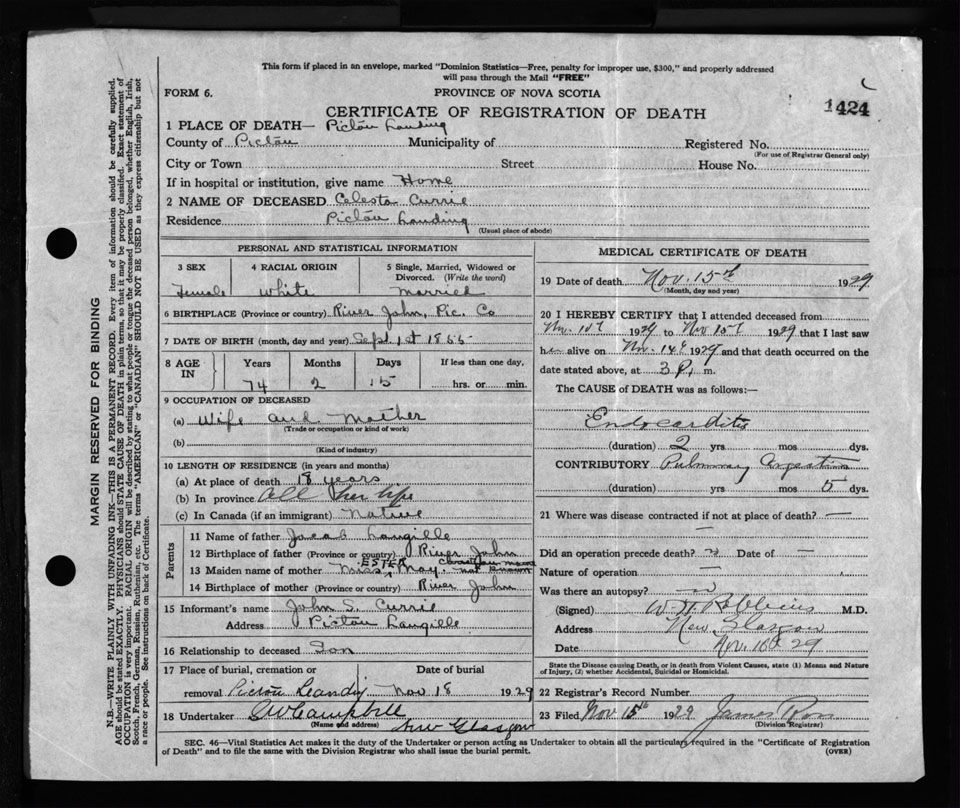 This form if placed in an envelope, marked "Dominion Statistics—Free, penalty for improper use, $300," and properly addressed
will pass through the Mail "FREE"
FORM 6.
PROVINCE OF NOVA SCOTIA
1424
CERTIFICATE OF REGISTRATION OF DEATH
1 PLACE OF DEATH— Pictou Landing
County of Pictou Municipality of Registered No.
(For use of Registrar General only)
City or Town Street House No.
If in hospital or institution, give name Home
2 NAME OF DECEASED Celesta Currie
Residence Pictou Landing
(Usual place of abode)
PERSONAL AND STATISTICAL INFORMATION
3 SEX 4 RACIAL ORIGIN 5 Single, Married, Widowed or
Divorced. (Write the word)
Female White Married
6 BIRTHPLACE (Province or country) River John, Pic. Co
7 DATE OF BIRTH (month, day and year) Sept 1st 1855
8 AGE IN Years Months Days If less than one day,
74 2 15 hrs. or min.
9 OCCUPATION OF DECEASED
(a) Wife and Mother
(Trade or occupation or kind of work)
(b)
(Kind of industry)
10 LENGTH OF RESIDENCE (in years and months)
(a) At place of death 18 years
(b) In province All her life
(c) In Canada (if an immigrant) Native
Parents
11 Name of father Jacob Langille
12 Birthplace of father (Province or country) River John
13 Maiden name of mother Miss ESTER May Christian name not known
14 Birthplace of mother (Province or country) River John
15 Informant's name John S. Currie
Address Pictou Langille
16 Relationship to deceased Son
17 Place of burial, cremation or Date of burial
removal Pictou Landing Nov 18 1929
18 Undertaker C W Campbell
(Name and address) New Glasgow
MEDICAL CERTIFICATE OF DEATH
19 Date of death Nov. 15th 1929
(Month, day and year)
20 I HEREBY CERTIFY that I attended deceased from
Nov. 10th 1929 to Nov 15th 1929 that I last saw
her alive on Nov. 14th 1929 and that death occurred on the
date stated above, at 3 P. m.
The CAUSE of DEATH was as follows:—
Endocarditis
(duration) 2 yrs mos dys.
CONTRIBUTORY Pulmonary Congestion
(duration) yrs mos 5 dys.
21 Where was disease contracted if not at place of death? —
—
Did an operation precede death? no Date of —
Nature of operation —
Was there an autopsy? no
(Signed) W. H. Robbins M.D.
Address New Glasgow
Date Nov. 16th 29
State the Disease causing Death, or in death from Violent Causes, state (1) Means and Nature
of Injury, (2) whether Accidental, Suicidal or Homicidal.
22 Registrar's Record Number
23 Filed Nov 15th 1929 James Ross
(Division Registrar)
SEC. 46—Vital Statistics Act makes it the duty of the Undertaker or person acting as Undertaker to obtain all the particulars required in the "Certificate of Registration
of Death" and to file the same with the Division Registrar who shall issue the burial permit. (OVER)
MARGIN RESERVED FOR BINDING
N.B.—WRITE PLAINLY WITH UNFADING INK—THIS IS A PERMANENT RECORD. Every item of information should be carefully supplied.
AGE should be stated EXACTLY. PHYSICIANS should STATE CAUSE OF DEATH in plain terms, so that it may be properly classified. Exact statement of
OCCUPATION is very important. RACIAL ORIGIN will be described by stating to what people or tongue the deceased person belonged, whether English, Irish,
Scotch, French, German, Russian, Ruthenian, etc. The terms "AMERICAN" or "CANADIAN" SHOULD NOT BE USED as they express citizenship but not
a race or people. See instructions on back of Certificate.